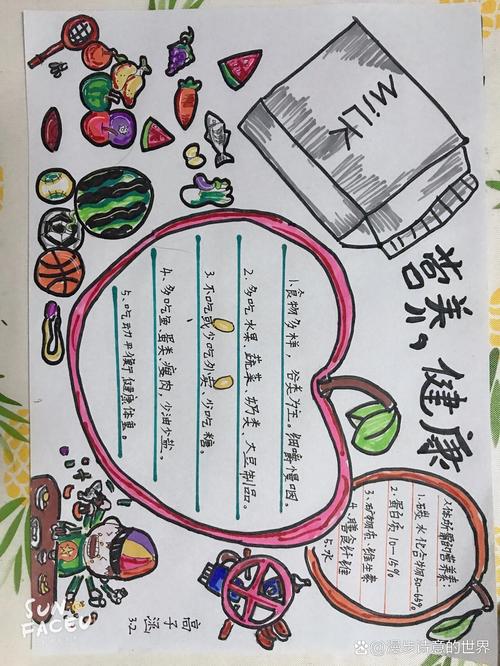 MILK
营养,健康
1.食物多样,谷类为主。细嚼慢咽。
2.多吃水果、蔬菜、奶类、大豆制品。
3.不吃或少吃外卖、少吃糖。
4.多吃鱼、蛋类、瘦肉,少油少盐。
5.吃动平衡,健康体重。
人体所需的营养素:
1.碳水化合物50-65%
2.蛋白质10-15%
3.矿物质、维生素
4.膳食纤维
5.水
高子涵
3.2
SUN.
FACED
Bai百科@漫步诗意的世界